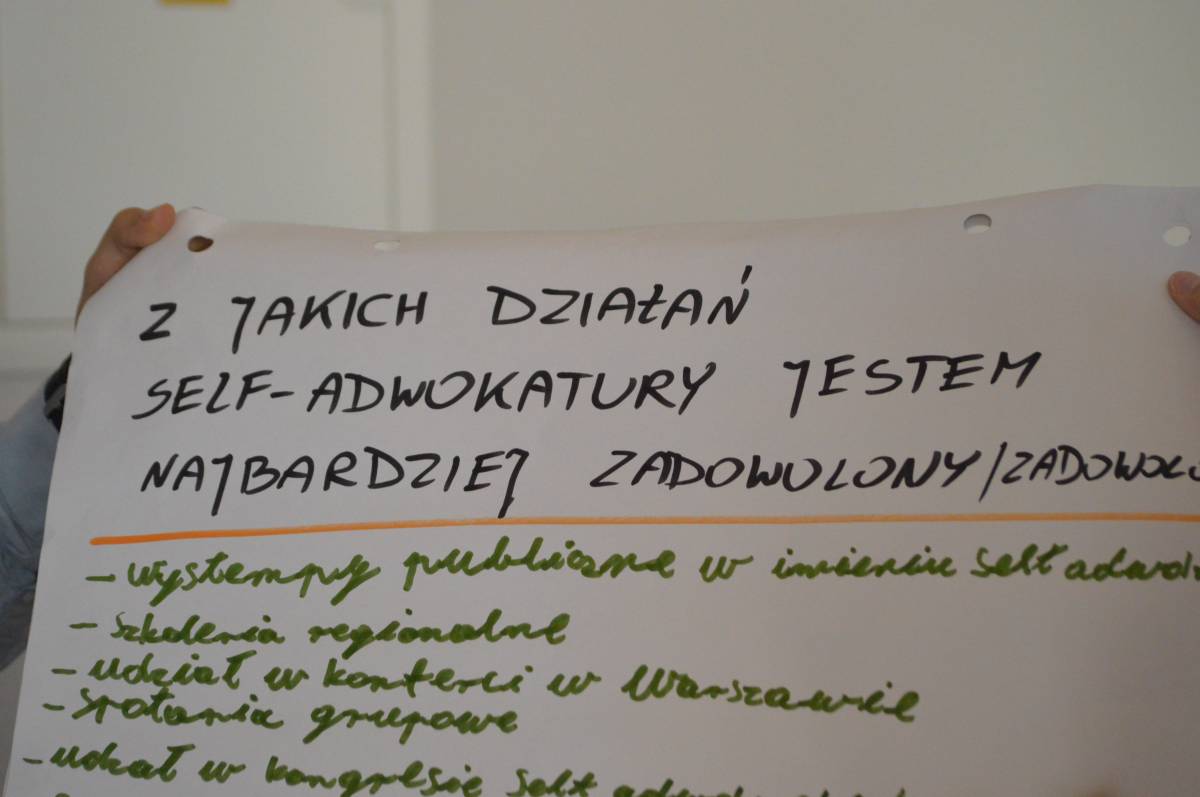 Z JAKICH DZIAŁAŃ
SELF-ADWOKATURY JESTEM
NAJBARDZIEJ ZADOWOLONY/ZADOWOLO
- wystempy publiczne w imieniu self adwo
- szkolenia regionalne
- udział w konferci w Warszawie
- spotania grupowe
- udzał w kongresie self